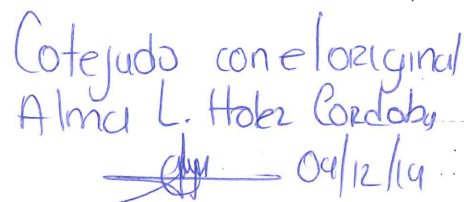 Cotejado con el original
Alma L. Holez Cordoba
04/12/19